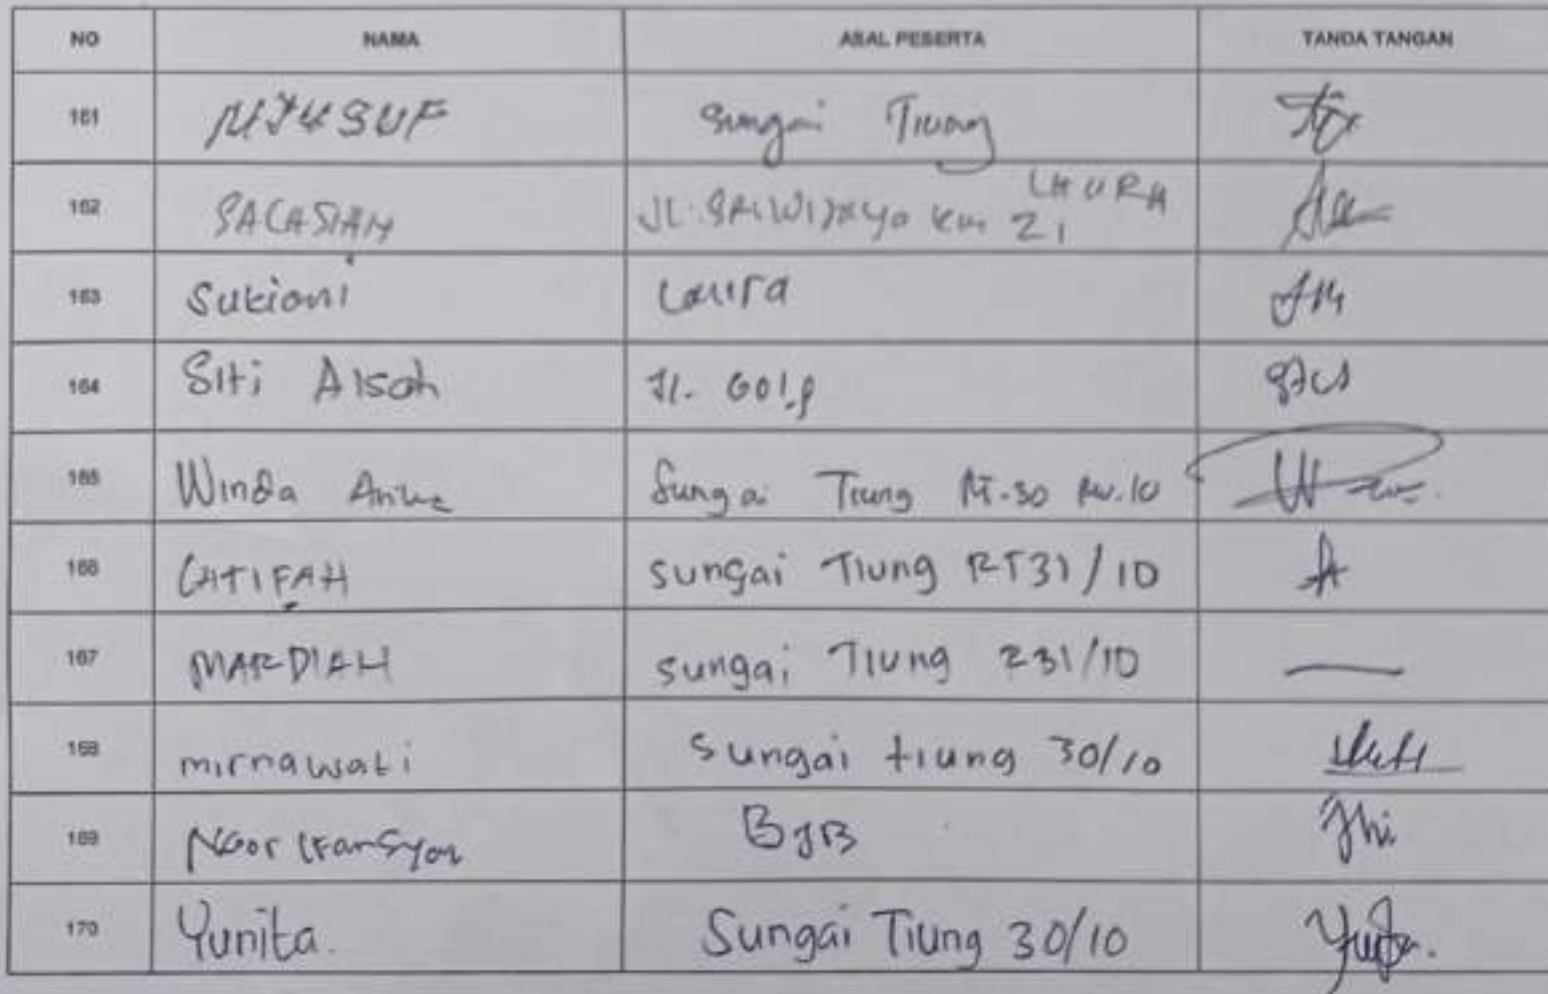 NO NAMA ASAL PESERTA TANDA TANGAN
161 M YUSUF Sungai Tiung
162 SALASIAH JL. SRIWIJAYA KM 21 LAURA
163 Sukiani Laura
164 Siti Aisah Jl. Golf
165 Winda Sungai Tiung RT.30 RW.10
166 LATIFAH sungai Tiung RT31/10
167 MARDIAH sungai Tiung 231/10
168 mirnawati sungai tiung 30/10
169 Noor BJB
170 Yunita. Sungai Tiung 30/10